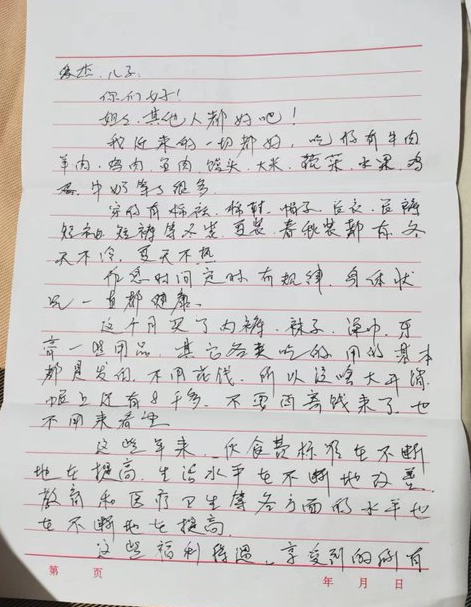 儿子.
你们好!
姐、其他人都好吧!
我近来的一切都好, 吃的有牛肉
羊肉, 鸡肉, 鱼肉, 馒头, 大米, 蔬菜, 水果, 鸡
蛋, 牛奶等等很多.
穿的有棉袄, 棉鞋, 帽子, 长衣, 长裤
短袖, 短裤等冬装 夏装, 春秋装都有, 冬
天不冷, 夏天不热
作息时间定时有规律, 身体状
况一直都健康.
这个月买了内裤, 袜子, 澡巾, 牙
膏一些用品, 其它各类吃的, 用的基本
都是发的, 不用花钱, 所以没啥大开销,
帐上还有8千多, 不要再寄钱来了, 也
不用来看望
这些年来, 伙食费标准在不断
地在提高, 生活水平在不断地改善,
教育和医疗卫生等各方面的水平也
在不断地在提高.
这些福利待遇, 享受到的
第 页 年 月 日